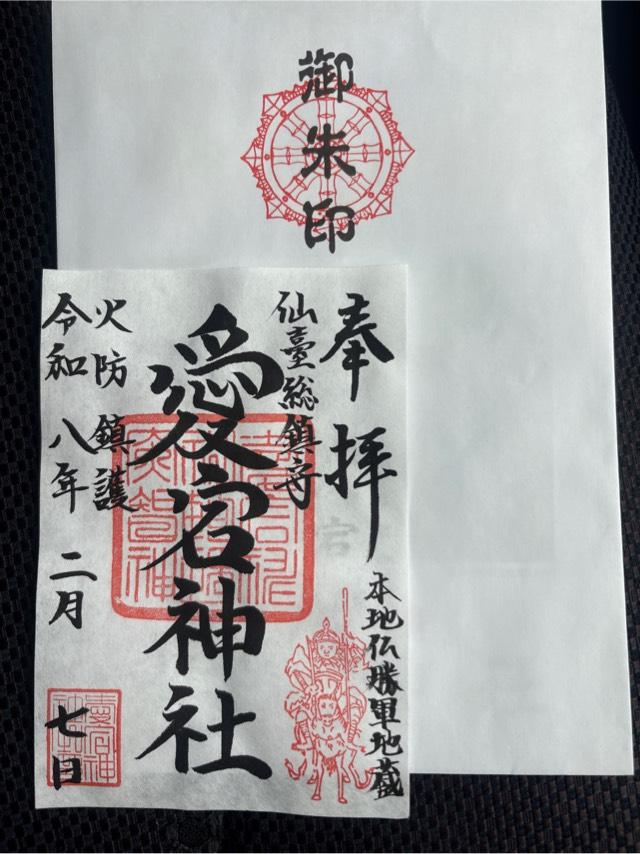 御朱印
奉拝
本地仏勝軍地蔵
仙臺総鎮守
愛宕神社
火防鎮護
令和八年二月七日